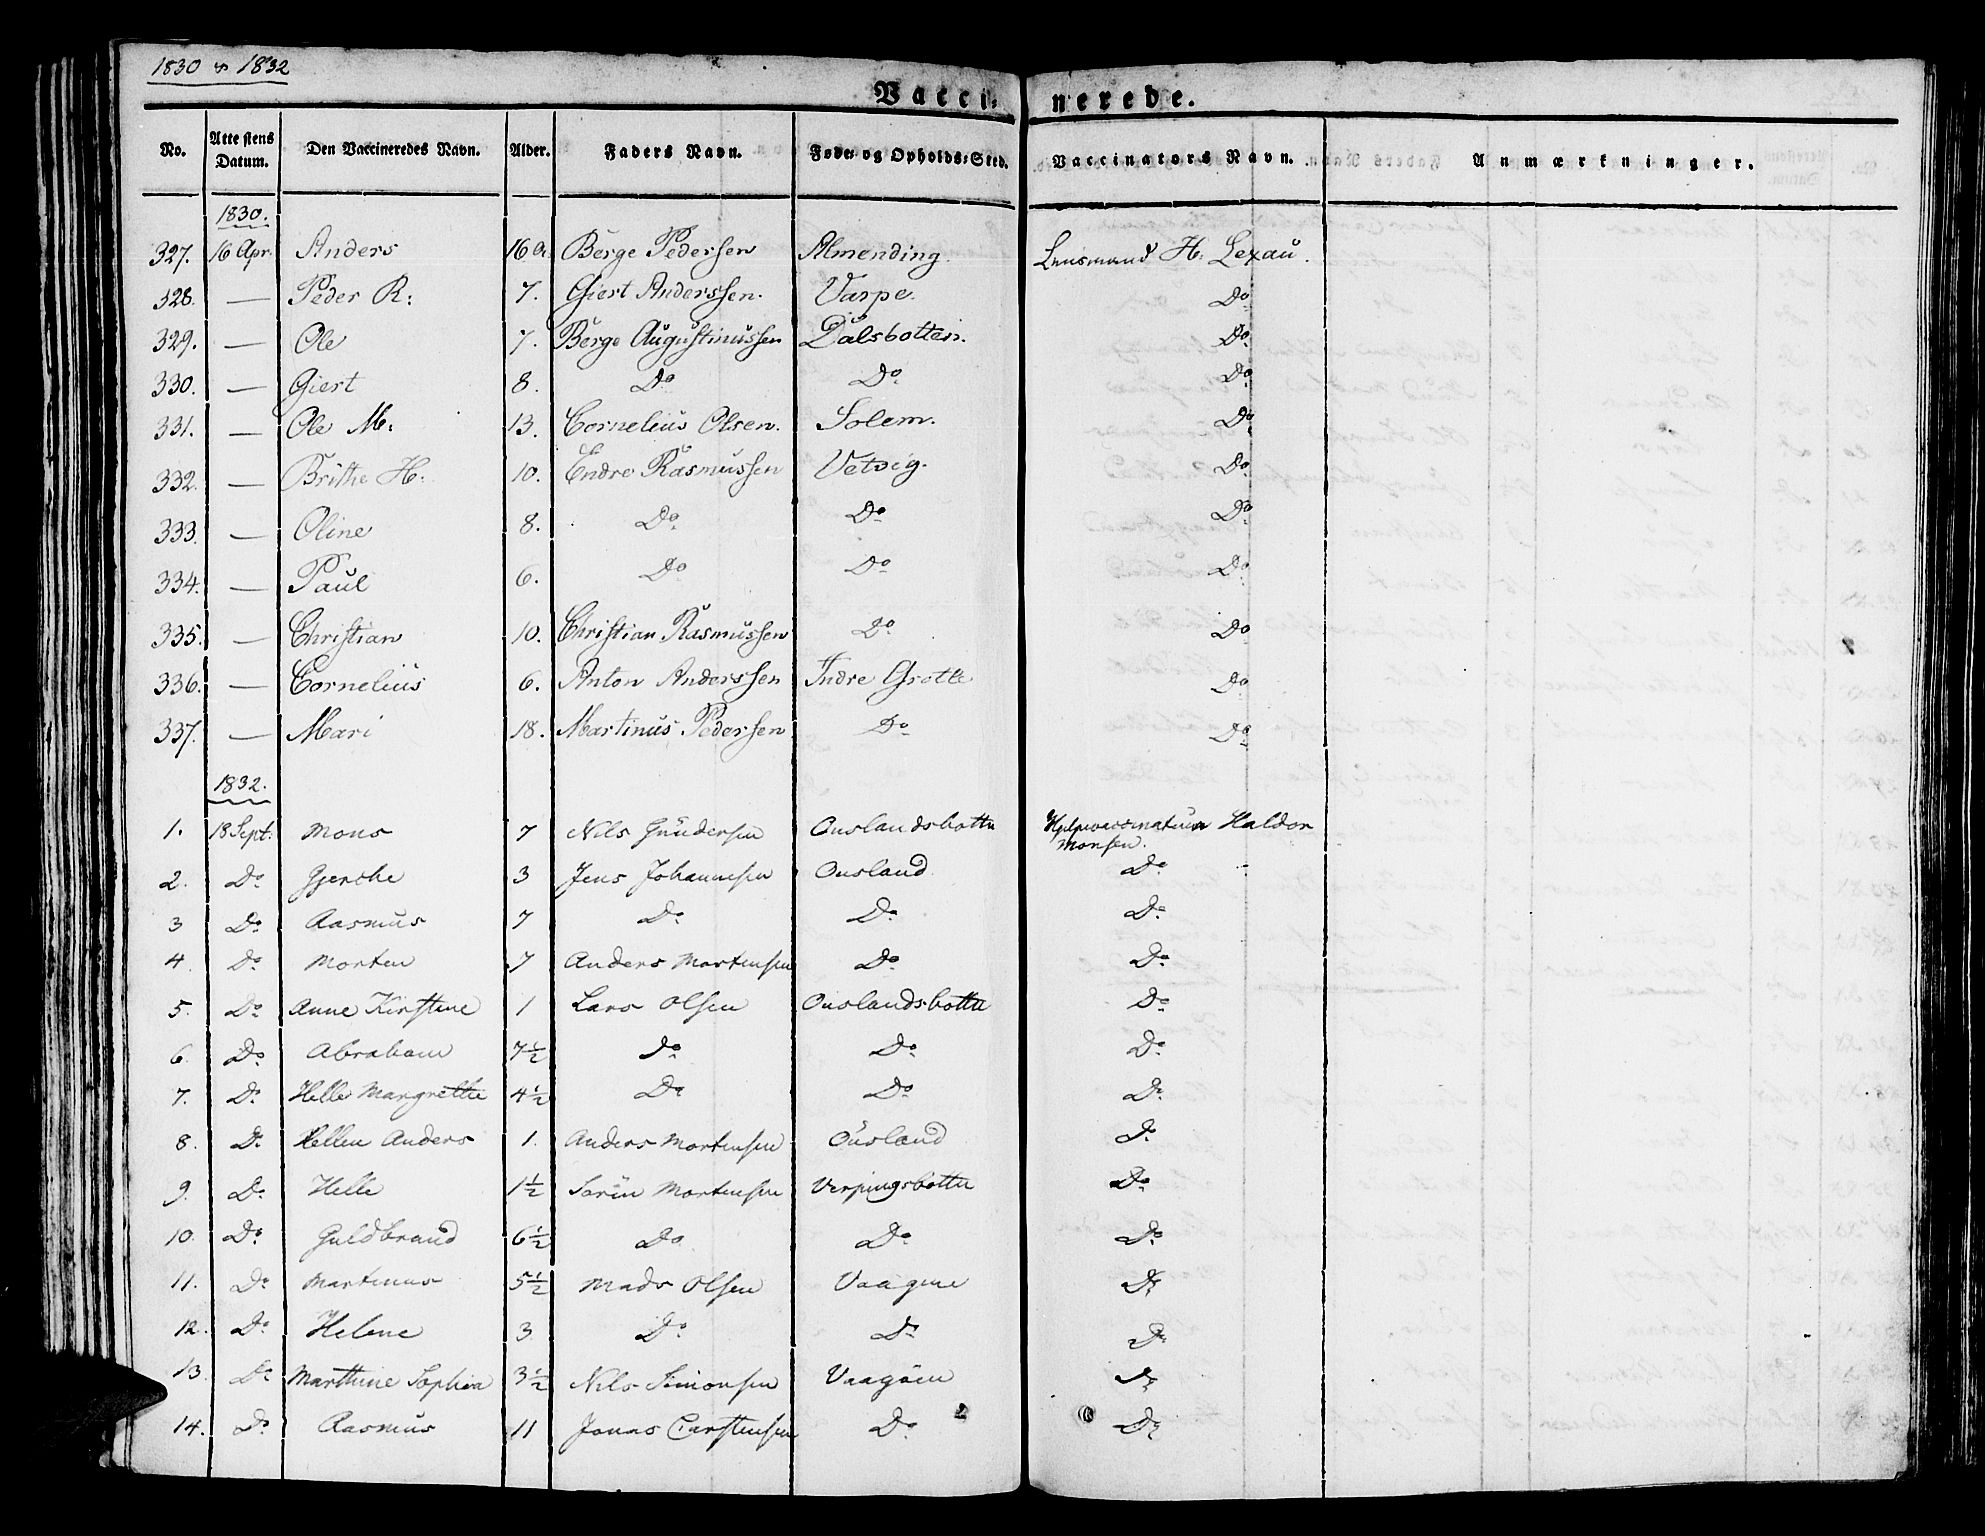 1830 & 1832
Vacci- nerede.
No. Attestens Datum. Den Vaccineredes Navn. Alder. Faders Navn. Føde- og Opholds-Sted. Vaccinators Navn. Anmærkninger.
1830.
327. 16 Apr. Anders 16 A. Berge Pederssen Almending. Lensmand H. Lexau.
328. — Peder R: 7. Giert Anderssen. Varpe. Do
329. — Ole 7. Berge Augustinussen Dalsbotten. Do
330. — Giert 8. Do Do Do
331. — Ole M: 13. Cornelius Olsen. Solem. Do
332. — Brithe H: 10. Endre Rasmussen Vetvig. Do
333. — Oline 8. Do Do Do
334. — Paul 6. Do Do Do
335. — Christian 10. Christian Rasmussen Do Do
336. — Cornelius 6. Anton Anderssen Indre Grotte Do
337. — Mari 18. Martinus Pederssen Do Do
1832.
1. 18 Sept. Mons 7 Nils Gundersen Ouslandsbotte Hjelpevaccinateur Haldor
Monsen.
2. Do Gjerthe 3 Jens Johannesen Ousland Do
3 Do Rasmus 7 Do Do Do
4. Do Morten 7 Anders Mortensen Do Do
5. Do Anne Kirstine 1 Lars Olsen Ouslandsbotte Do
6. Do Abraham 7½ Do Do Do
7. Do Helle Margrethe 4½ Do Do Do
8. Do Hellen Anders 1. Anders Mortensen Ousland Do
9. Do Helle 1½ Sørin Mortensen Verpingsbotte Do
10. Do Guldbrand 6½ Do Do Do
11. Do Martinus 5½ Mads Olsen Do
12. Do Helene 3 Do Do Do
13. Do Marthine Sophia 3½ Nils Simonsen Vaagøen Do
14. Do Rasmus 11 Jonas Carstensen Do Do